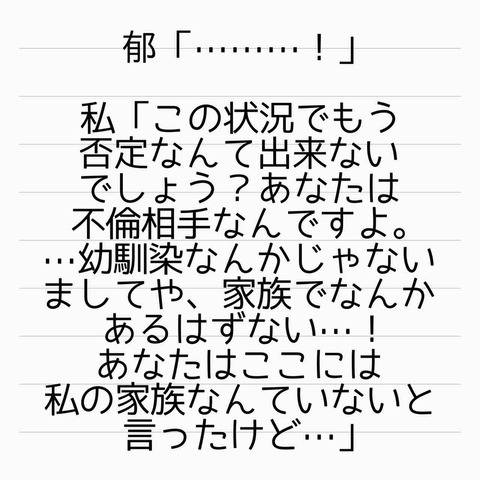 郁「………！」
私「この状況でもう
否定なんて出来ない
でしょう？あなたは
不倫相手なんですよ。
…幼馴染なんかじゃない
ましてや、家族でなんか
あるはずない…！
あなたはここには
私の家族なんていないと
言ったけど…」